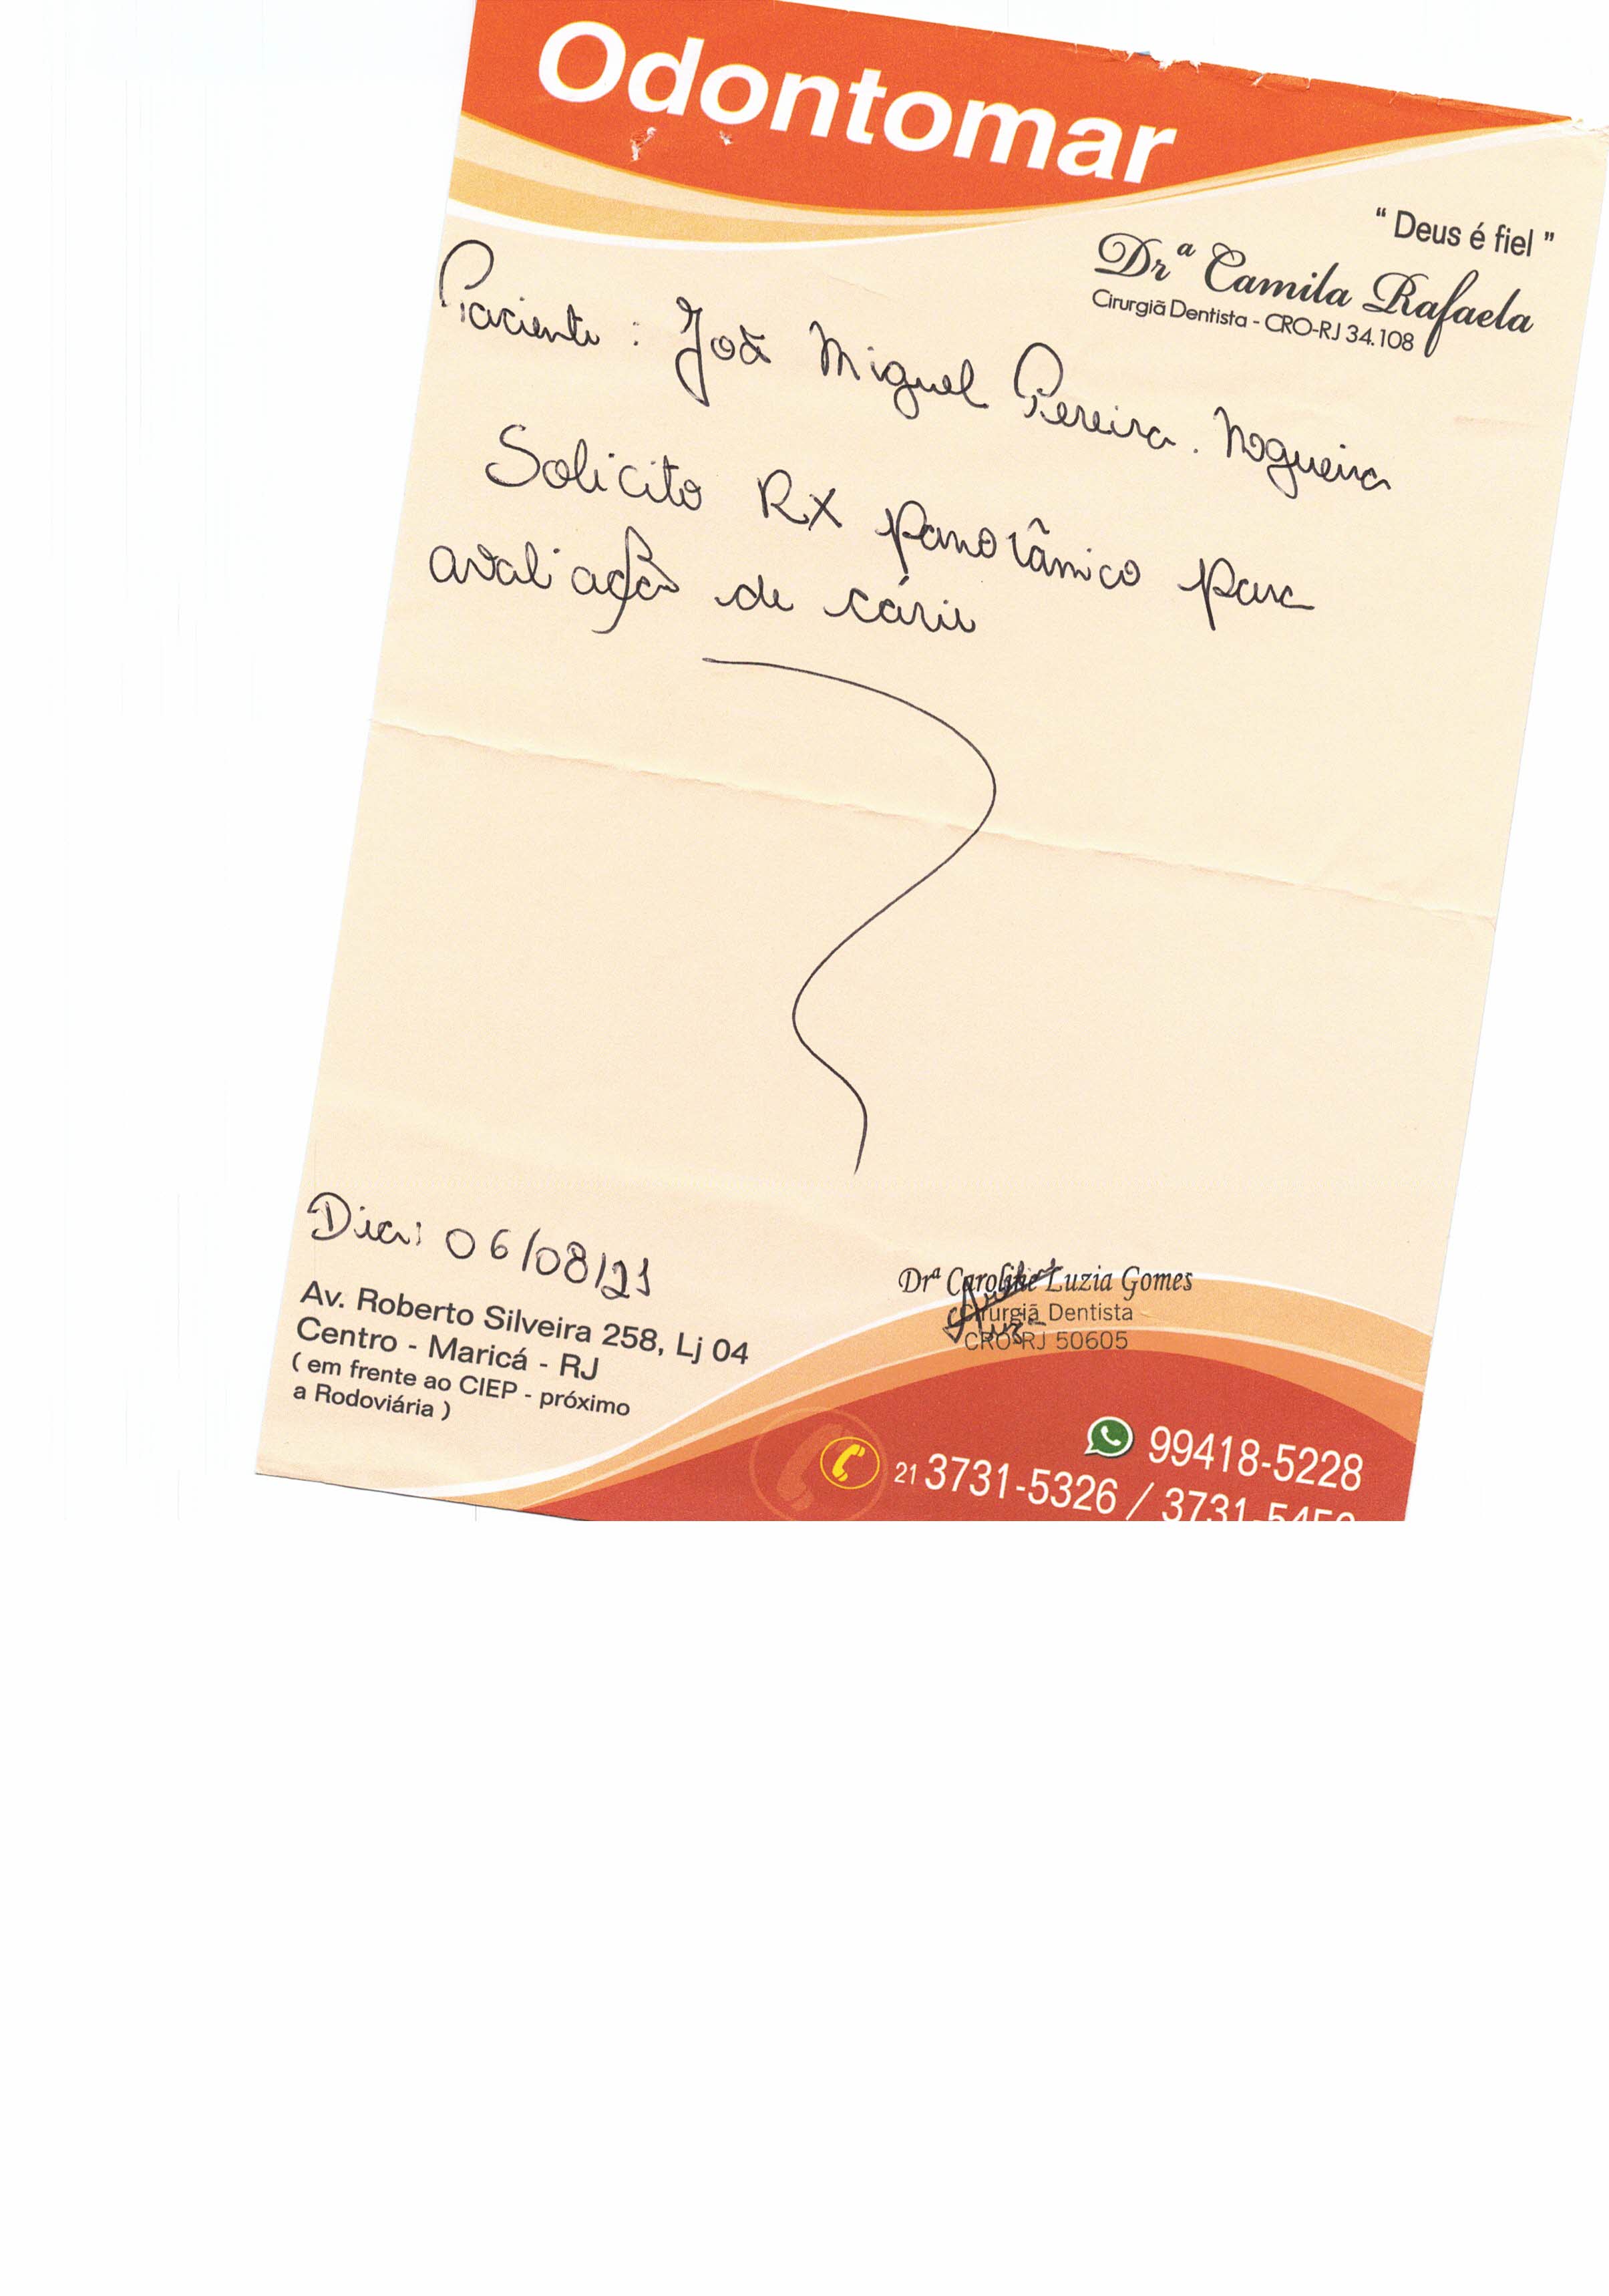 Odontomar
" Deus é fiel "
Drª Camila Rafaela
Cirurgiã Dentista - CRO-RJ 34.108
Paciente : João Miguel Pereira. Nogueira
Solicito RX panorâmico para
avaliação de cárie
Dia: 06/08/21
Av. Roberto Silveira 258, Lj 04
Centro - Maricá - RJ
( em frente ao CIEP - próximo
a Rodoviária )
Drª Caroline Luzia Gomes
Cirurgiã Dentista
CRO-RJ 50605
99418-5228
21 3731-5326 / 3731-